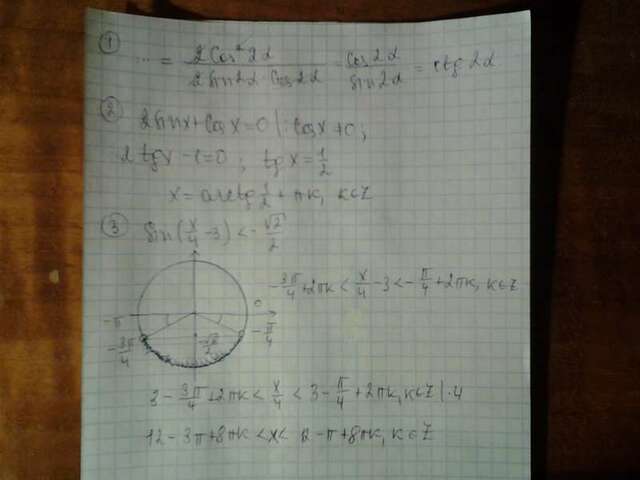 ① ... = 2Cos²2α / 2Sin2α·Cos2α = Cos2α / Sin2α = ctg2α
② 2Sinx+Cosx=0 |:Cosx≠0;
2tgx-1=0; tgx=1/2
x=arctg 1/2 + πk, k∈Z
③ Sin(x/4-3)<-√2/2
-3π/4+2πk < x/4-3 < -π/4+2πk, k∈Z
-π 0
-3π/4 -√2/2 -π/4
3-3π/4+2πk < x/4 < 3-π/4+2πk, k∈Z |·4
12-3π+8πk < x < 12-π+8πk, k∈Z